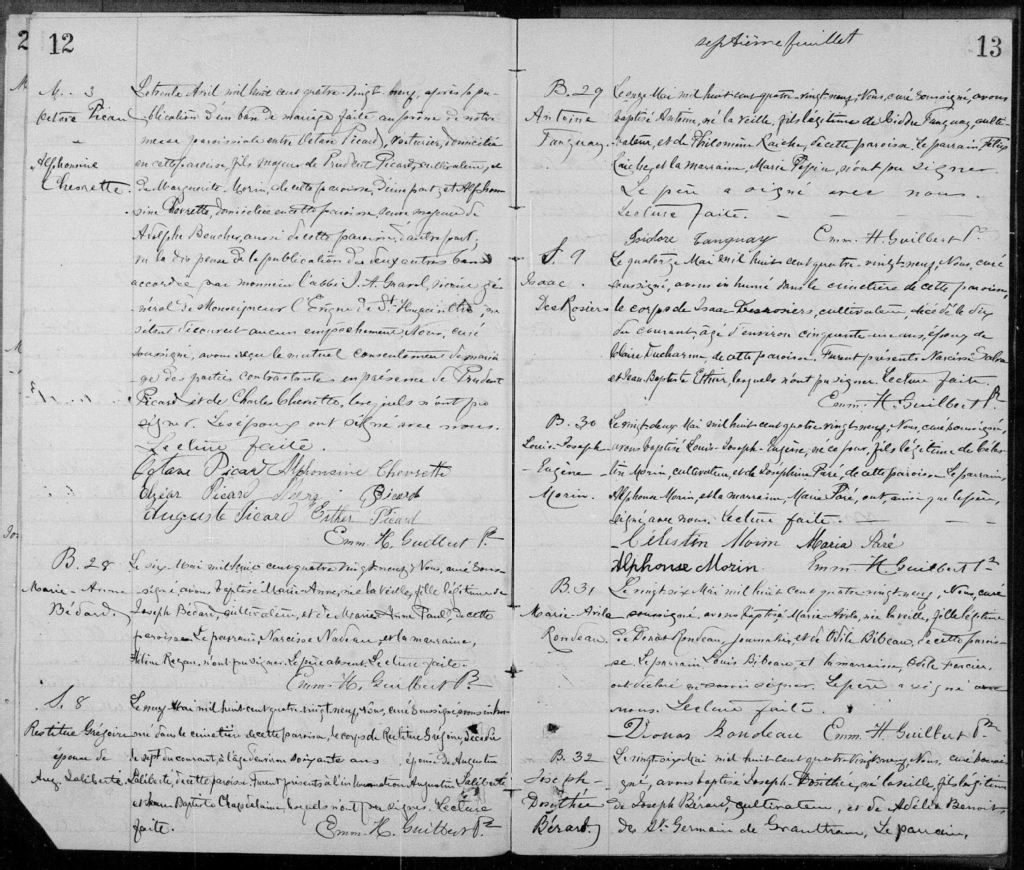 12
M. 3
Octave Picard
Alphonsine
Chevrette
Le trente Avril mil huit cent quatre-vingt neuf, après la pu-
blication d'un ban de mariage faite au prône de notre
messe paroissiale entre Octave Picard, voiturier, domicilié
en cette paroisse, fils majeur de Prudent Picard, cultivateur, et
de Marguerite Morin, de cette paroisse, d'une part; et Alphon-
sine Chevrette, domiciliée en cette paroisse, veuve majeure de
Adolphe Boucher, aussi de cette paroisse, d'autre part;
vu la dispense de la publication des deux autres bans
accordée par monsieur l'abbé J. A. Gravel, vicaire gé-
néral de Monseigneur l'Evêque de St. Hyacinthe, ne
s'étant découvert aucun empêchement, Nous, curé
soussigné, avons reçu le mutuel consentement de maria-
ge des parties contractantes en présence de Prudent
Picard et de Charles Chevrette, lesquels n'ont pu
signer. Les époux ont signé avec nous.
Lecture faite.
Octave Picar Alphonsine Chevrette
Elzéar Picard Picard
Auguste Picard Esther Picard
Emm. H. Guilbert Ptr
B. 28
Marie-Anne
Bédard
Le six Mai mil huit cent quatre-vingt neuf, Nous, curé sous-
signé, avons baptisé Marie-Anne, née la veille, fille légitime de
Joseph Bédard, cultivateur, et de Marie Anne Paul, de cette
paroisse. Le parrain, Narcisse Nadeau, et la marraine,
Regan, n'ont pu signer. Le père absent. Lecture faite.
Emm. H. Guilbert Ptr
S. 8
Restitue Grégoire
épouse de
Aug. Laliberté
Le neuf Mai mil huit cent quatre-vingt neuf, Nous, curé soussigné, avons inhu-
mé dans le cimetière de cette paroisse, le corps de Restitue Grégoire, décédée
le sept du courant, à l'âge d'environ soixante ans épouse de Augustin
Laliberté, de cette paroisse. Furent présents à l'inhumation Augustin Laliberté
et Jean Baptiste Chapdelaine, lesquels n'ont pu signer. Lecture
faite. Emm. H. Guilbert Ptr
septième feuillet
13
B. 29
Antoine
Tanguay
Le onze Mai mil huit cent quatre-vingt-neuf, Nous, curé soussigné, avons
baptisé Antoine, né la veille, fils légitime de Isidore Tanguay, culti-
vateur, et de Philomène Raiche, de cette paroisse. Le parrain, Félix
Raiche, et la marraine, Marie Pépin, n'ont pu signer.
Le père a signé avec nous.
Lecture faite.
Isidore Tanguay Emm. H. Guilbert Ptr
S. 9
Isaac
DesRosiers
Le quatorze Mai mil huit cent quatre-vingt-neuf, Nous, curé
soussigné, avons inhumé dans le cimetière de cette paroisse,
le corps de Isaac Desrosiers, cultivateur, décédé le dix
du courant, âgé d'environ cinquante un ans, époux de
Claire Ducharme, de cette paroisse. Furent présents Narcisse
et Jean Baptiste Ethier, lesquels n'ont pu signer. Lecture faite.
Emm. H. Guilbert Ptr
B. 30
Louis-Joseph-
Eugène
Morin.
Le vingt-deux Mai mil huit cent quatre-vingt-neuf, Nous, curé soussigné,
avons baptisé Louis-Joseph-Eugène, né ce jour, fils légitime de Céles-
tin Morin, cultivateur, et de Joséphine Paré, de cette paroisse. Le parrain,
Alphonse Morin, et la marraine, Marie Paré, ont, ainsi que le père,
signé avec nous. Lecture faite.
Célestin Morin Maria Paré
Alphonse Morin Emm. H. Guilbert Ptr
B. 31
Marie-Avila
Rondeau
Le vingt six Mai mil huit cent quatre-vingt neuf, Nous, curé
soussigné, avons baptisé Marie Avila, née la veille, fille légitime
de Donat Rondeau, journalier, et de Odile Bibeau, de cette parois-
se. Le parrain Louis Bibeau, et la marraine, Odile Forcier,
ont déclaré ne savoir signer. Le père a signé avec
nous. Lecture faite.
Dionas Rondeau Emm. H. Guilbert Ptr
B. 32
Joseph-
Dorothée
Bérard
Le vingt six Mai mil huit cent quatre-vingt neuf, Nous, curé soussi-
gné, avons baptisé Joseph-Dorothée, né la veille, fils légitime
de Joseph Bérard, cultivateur, et de Adélia Benoit,
de St. Germain de Grantham. Le parrain,